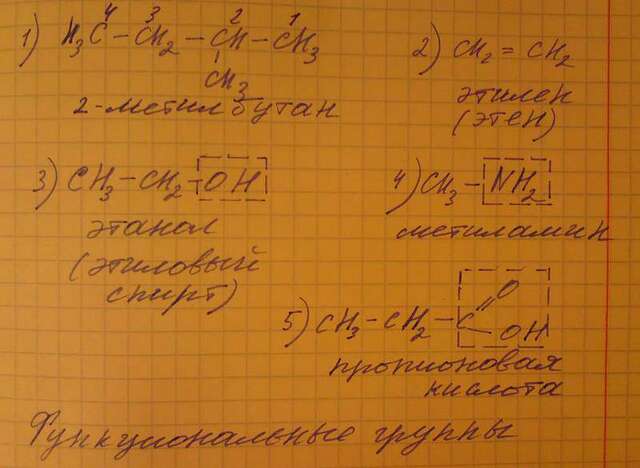 4 3 2 1
1) H₃C – CH₂ – CH – CH₃
CH₃
2-метилбутан
2) CH₂ = CH₂
этилен
(этен)
3) CH₃ – CH₂ – OH
этанол
(этиловый
спирт)
4) CH₃ – NH₂
метиламин
5) CH₃ – CH₂ – C
O
OH
пропионовая
кислота
Функциональные группы